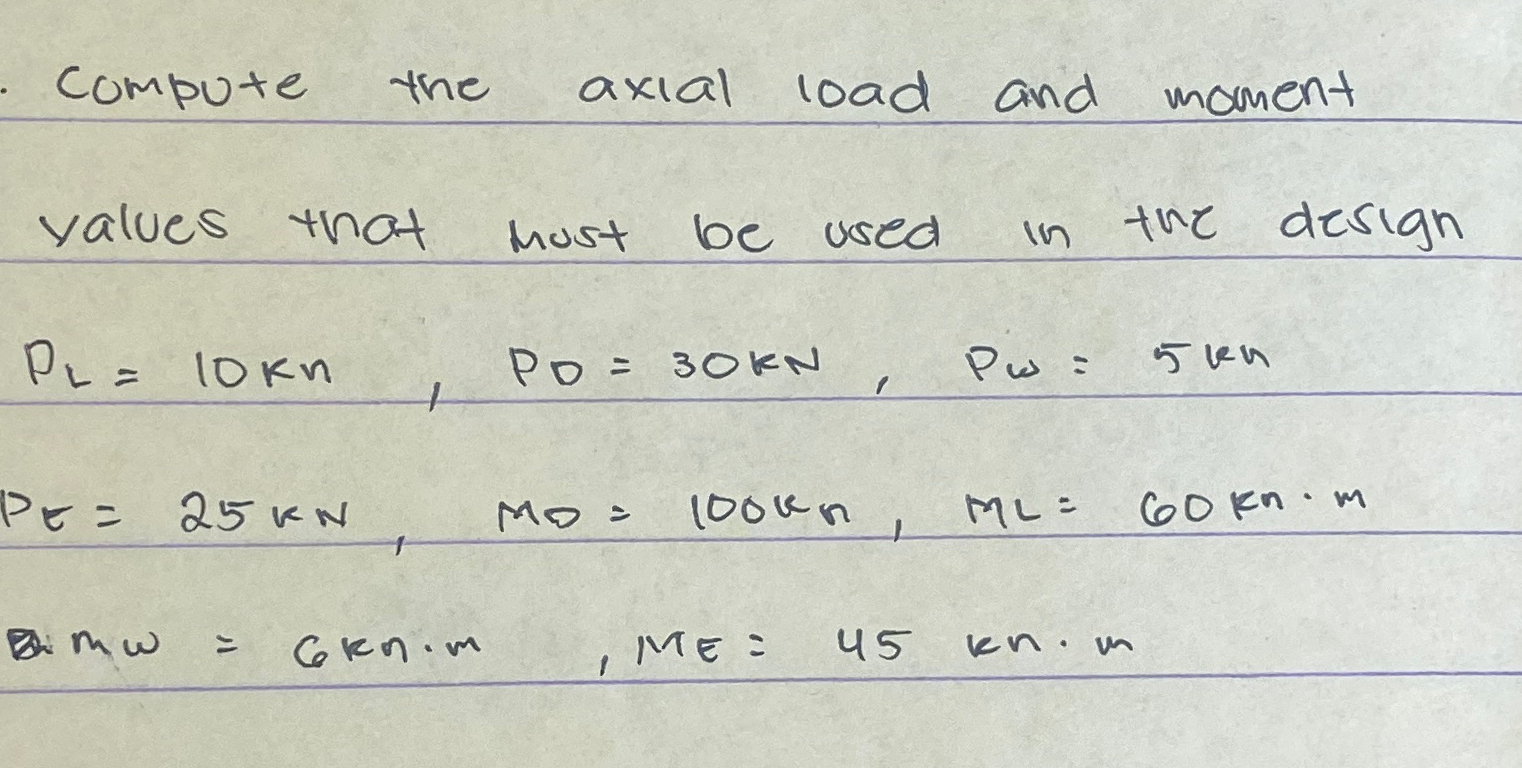 . Compute the axial load and moment
values that must be used in the design
PL = 10 kn , PD = 30 KN , Pw = 5 kn
PE = 25 KN , MD = 100 kn , ML = 60 kn · m
MW = 6 kn · m , ME = 45 kn · m